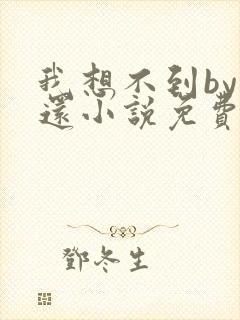 我想不到by
還小說免費
鄧冬生